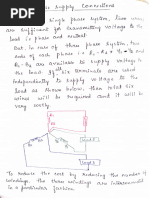 supply Connections
single phase system,
are sufficient for transmitting voltage to the
load is phase and neutral
But, in case of three phase system, two
ends of each phase i.e R1-R2, Y1-Y2 and
B1-B2 are available to supply voltage
to the load
If six terminals are used
independently to supply voltage to the
load as shown below, then total six
wires will be required and it will be
very costly.
To reduce the cost by reducing the number of
windings, the three windings are interconnected
in a particular fashion.